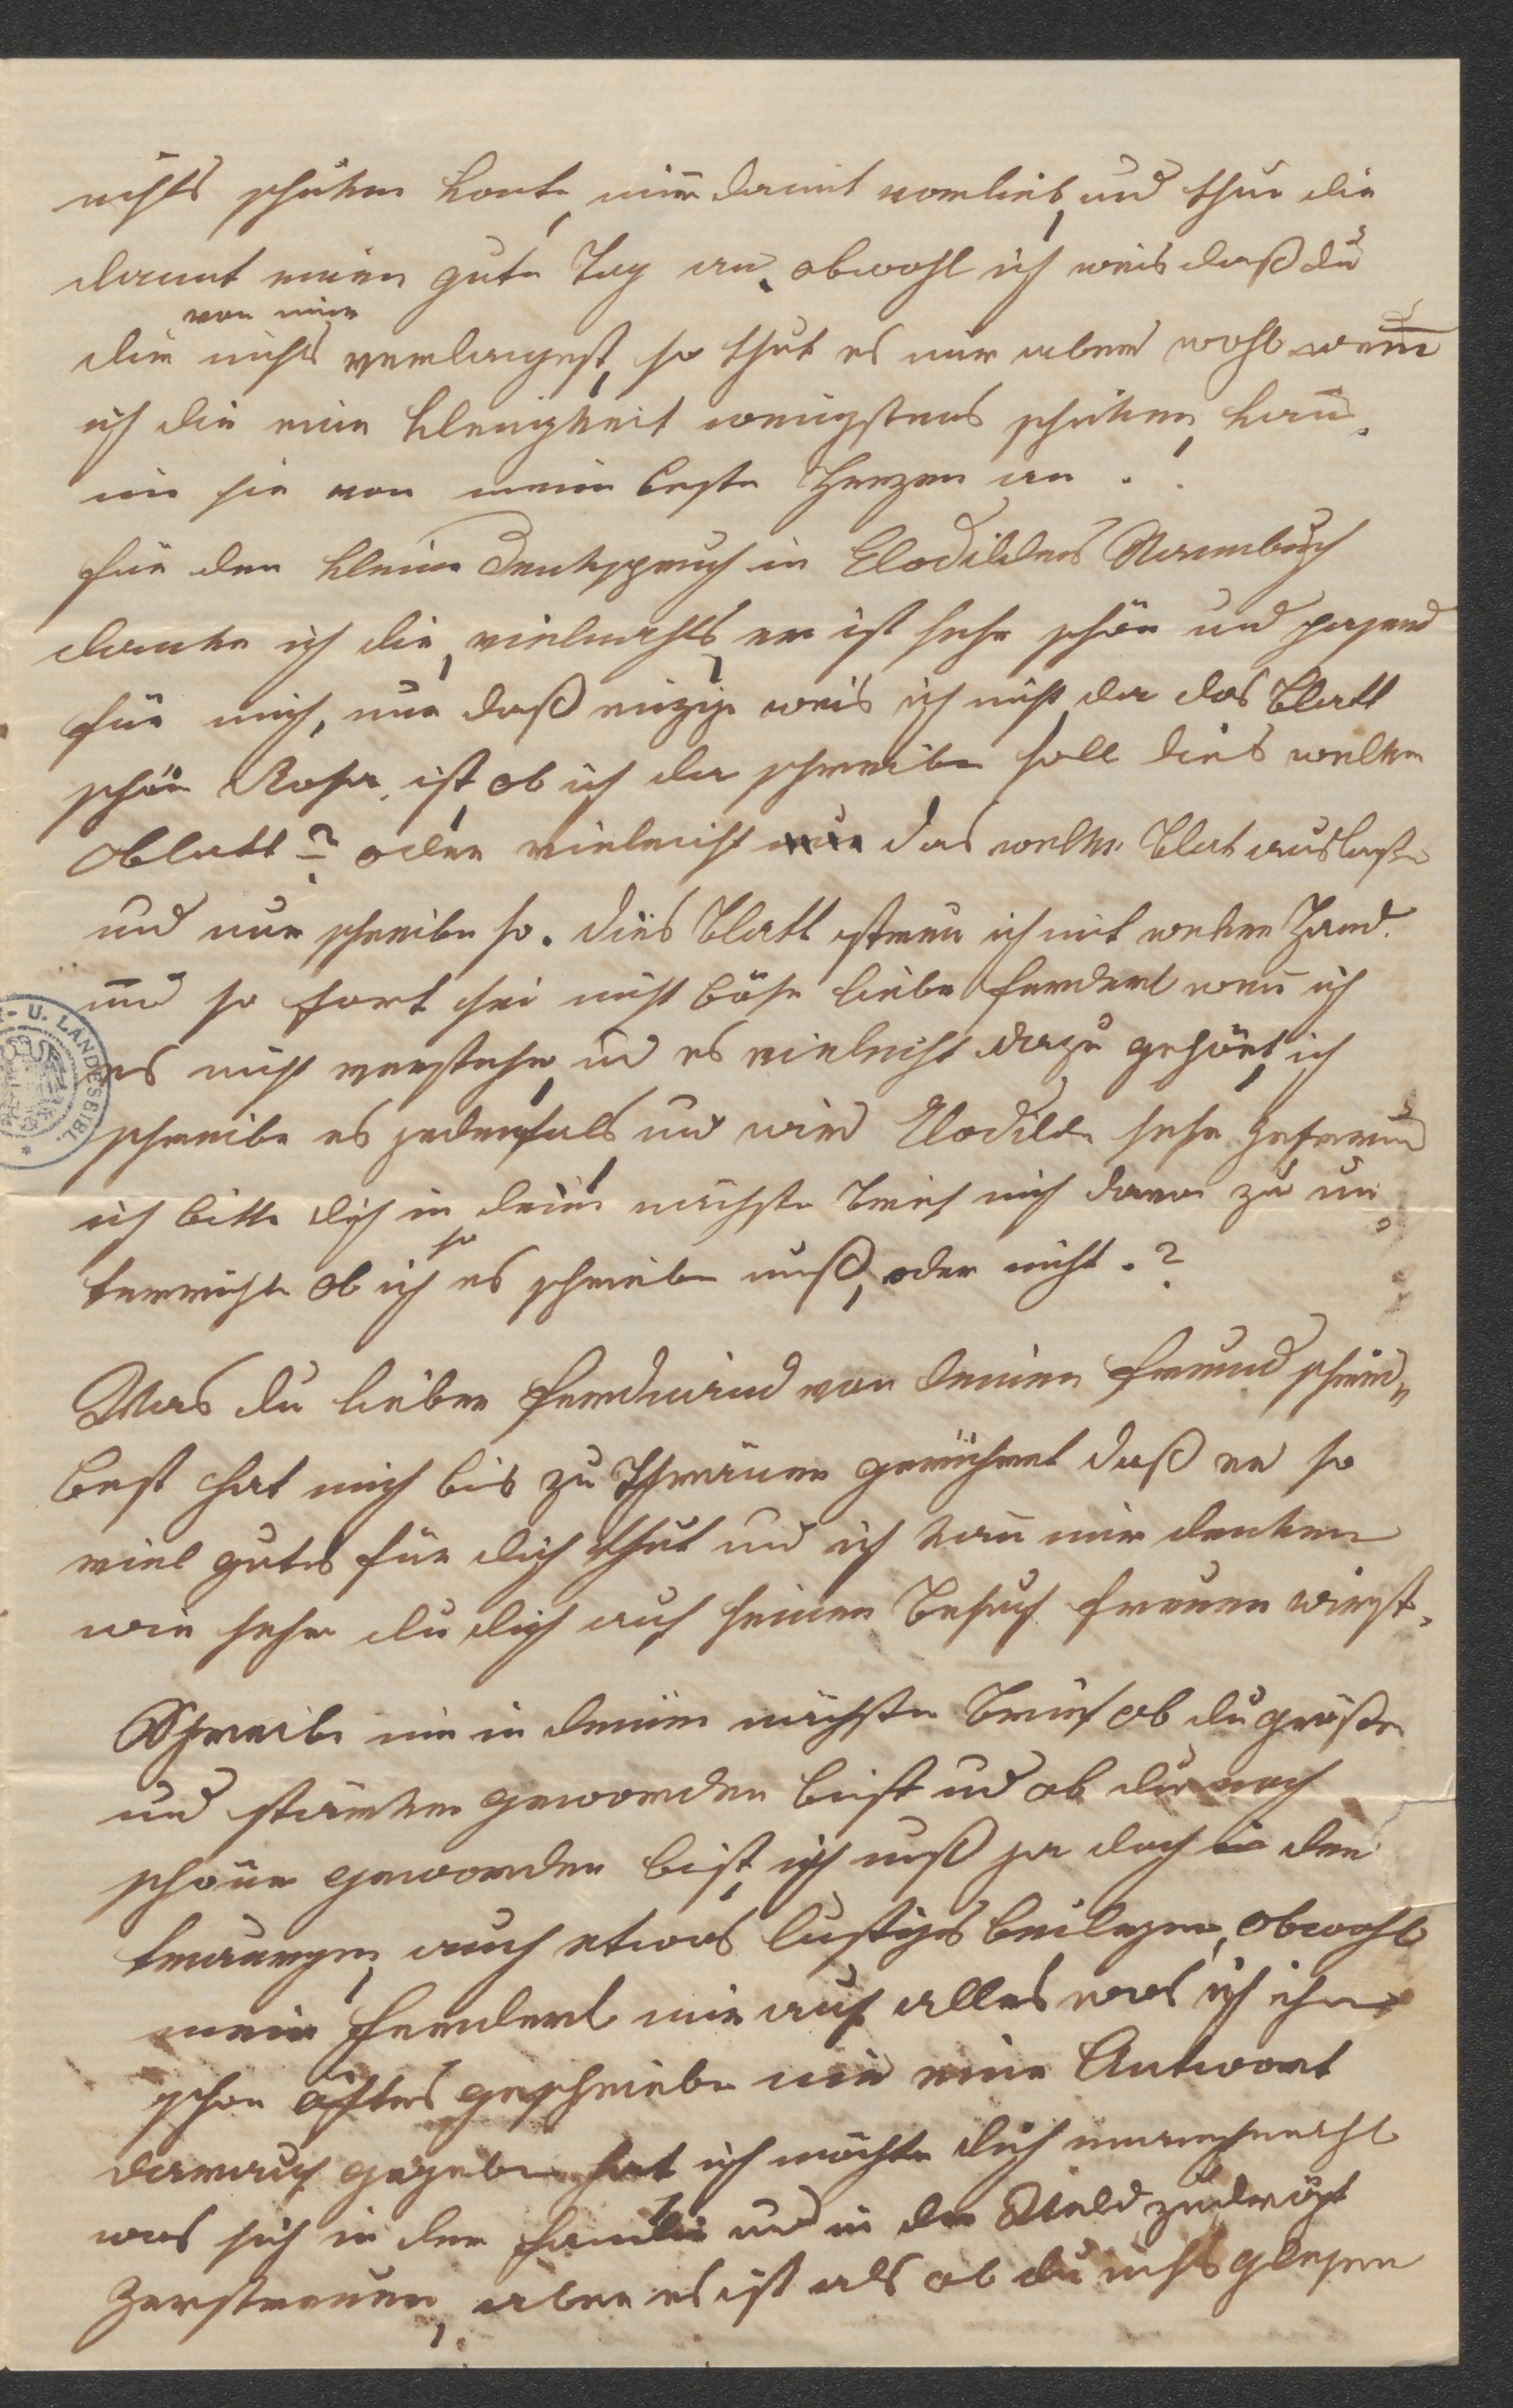 nichts schiken konte, nim damit vorlieb, und thue dir
damit einen gute Tag an. obwohl ich weis daß du
von mir
dir nichts verlangest, so thut es mir aber wohl wenn
ich dir eine kleinigkeit wenigstens schiken, kan.
nim sie von meine beste Herzen an.
für den kleine Denkspruch in Clodildes Stammbuch
danke ich dir, vielmahls, er ist sehr schön und passend
für mich, nur daß einzige weis ich nicht, da das Blatt
schön Rosa, ist, ob ich da schreiben soll dies welke
Blatt? oder vieleicht das welke Blat auslasse
und nur schreibe so. dies Blatt ich mit Hand.
und so fort sei nicht böse liebe Ferderl wen ich
es nicht verstehe, und es vieleicht dazu gehört, ich
schreibe es jedenfals, und wird Clodilde sehr gefreuen
ich bitte dich in dein nächste Brief mich davon zu un
so
terrichte ob ich es schreiben muß, oder nicht.?
Was du lieber Ferdinand von deinen Freund schrei„
best hat mich bis zu Thränen gerührt daß er so
viel gutes für dich thut und ich kan mir denken
wie sehr du dich auf seinen Besuch freuen wirst.
Schreibe mir in deinen nächsten Brief ob du größer
und stärker geworden bist und ob du noch
schöner geworden bist, ich muß ja doch in den
traurigen, auch etwas lustiges beilegen, obwohl
mein Ferderl mir auf alles was ich ihm
schon öfters geschriebe nie eine Antwort
darauf gegeben hat ich möchte dich manchmahl
was sich in der Familie und in der Welt zuträgt
Zerstreuen, aber es ist als ob du nichts glesen
K.- U. LANDESBIBL.